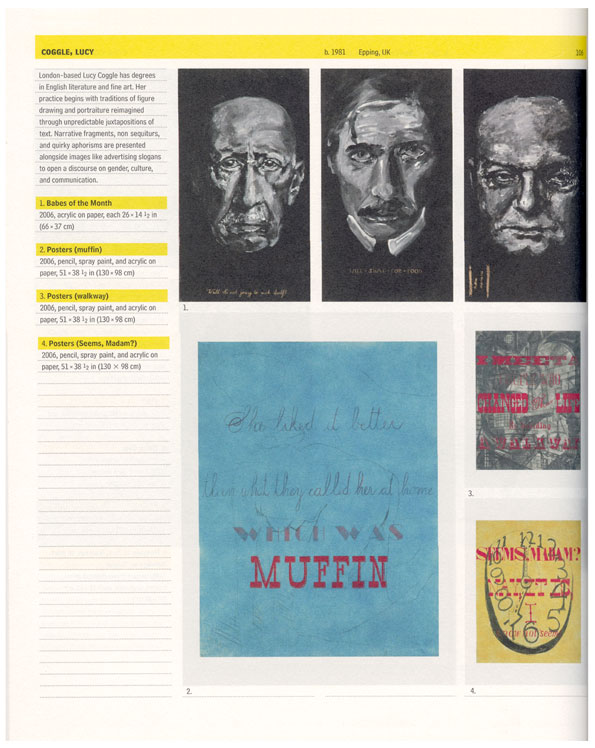 COGGLE, LUCY b. 1981 Epping, UK 106
London-based Lucy Coggle has degrees
in English literature and fine art. Her
practice begins with traditions of figure
drawing and portraiture reimagined
through unpredictable juxtapositions of
text. Narrative fragments, non sequiturs,
and quirky aphorisms are presented
alongside images like advertising slogans
to open a discourse on gender, culture,
and communication.
1. Babes of the Month
2006, acrylic on paper, each 26 × 14 1/2 in
(66 × 37 cm)
2. Posters (muffin)
2006, pencil, spray paint, and acrylic on
paper, 51 × 38 1/2 in (130 × 98 cm)
3. Posters (walkway)
2006, pencil, spray paint, and acrylic on
paper, 51 × 38 1/2 in (130 × 98 cm)
4. Posters (Seems, Madam?)
2006, pencil, spray paint, and acrylic on
paper, 51 × 38 1/2 in (130 × 98 cm)
WILL WORK FOR FOOD
1.
She liked it better
than what they called her at home
WHICH WAS
MUFFIN
2.
3.
SEEMS, MADAM?
I
know not seems
4.